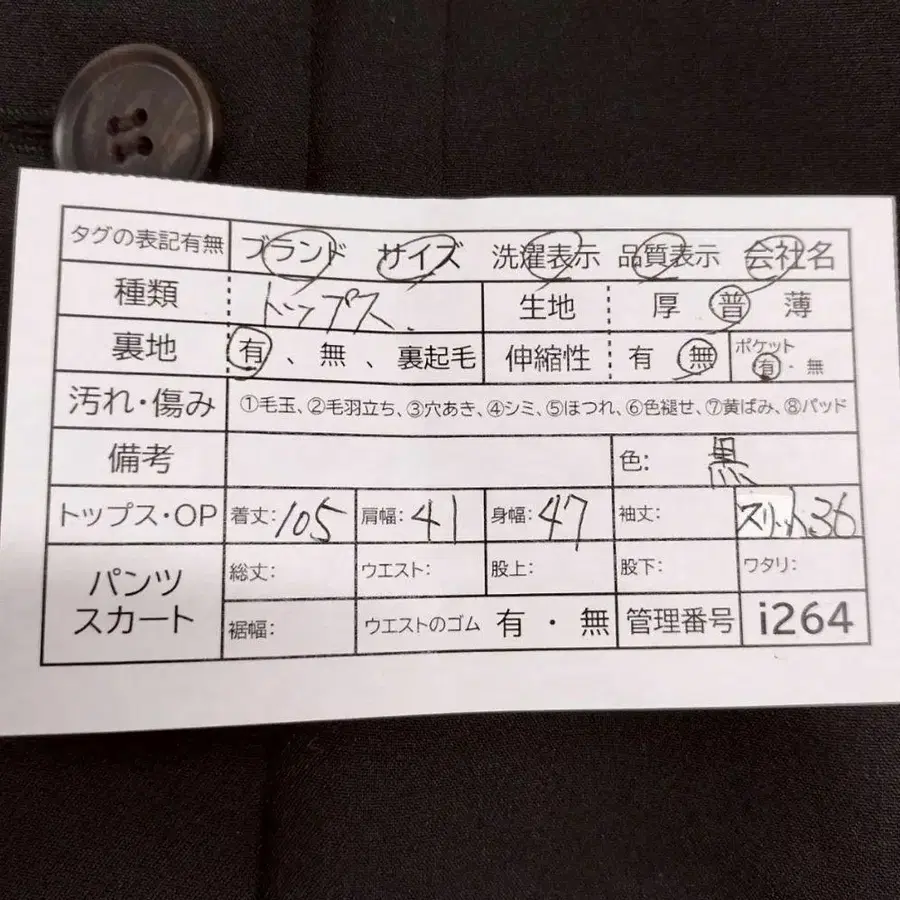 タグの表記有無 ブランド サイズ 洗濯表示 品質表示 会社名
種類 トップス、 生地 厚 普 薄
裏地 有、無、裏起毛 伸縮性 有 無 ポケット 有・無
汚れ・傷み ①毛玉、②毛羽立ち、③穴あき、④シミ、⑤ほつれ、⑥色褪せ、⑦黄ばみ、⑧パッド
備考 色: 黒
トップス・OP 着丈:105 肩幅:41 身幅:47 袖丈: スリット36
パンツ スカート 総丈: ウエスト: 股上: 股下: ワタリ:
裾幅: ウエストのゴム 有・無 管理番号 i264